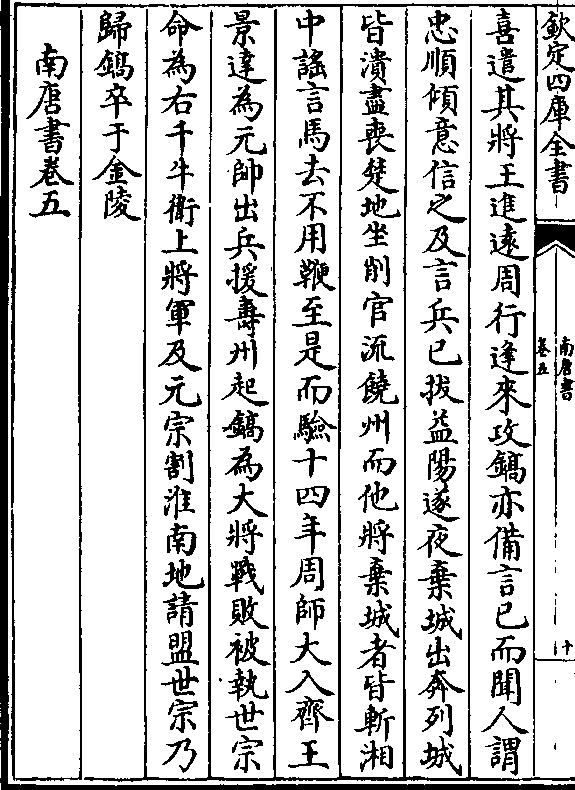 欽定四庫全書
南唐書
卷五
十
喜遣其將王進逵周行逢來攻鎬亦備言已而聞人謂
忠順傾意信之及言兵已拔益陽遂夜棄城出奔列城
皆潰盡喪楚地坐削官流饒州而他將棄城者皆斬湘
中謡言馬去不用鞭至是而驗十四年周師大入齊王
景達為元帥出兵援壽州起鎬為大將戰敗被執世宗
命為右千牛衛上將軍及元宗割淮南地請盟世宗乃
歸鎬卒于金陵
南唐書卷五